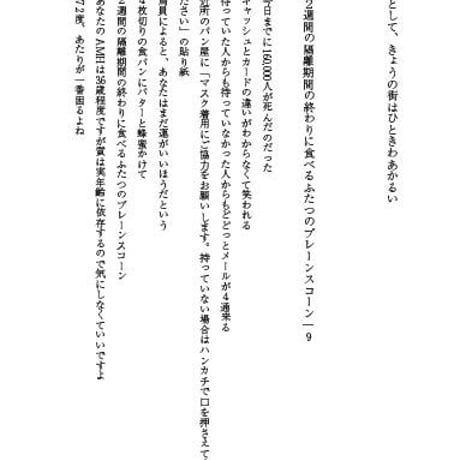 として、きょうの街はひときわあかるい
2週間の隔離期間の終わりに食べるふたつのプレーンスコーン｜9
今日までに160,000人が死んだのだった
キャッシュとカードの違いがわからなくて笑われる
待っていた人からも待っていなかった人からもどどっとメールが4通来る
近所のパン屋に「マスク着用にご協力をお願いします。持っていない場合はハンカチで口を押さえて
ださい」の貼り紙
員によると、あなたはまだ運がいいほうだという
4枚切りの食パンにバターと蜂蜜かけて
2週間の隔離期間の終わりに食べるふたつのプレーンスコーン
あなたのAMHは36歳程度ですが質は実年齢に依存するので気にしなくていいですよ
72度、あたりが一番困るよね